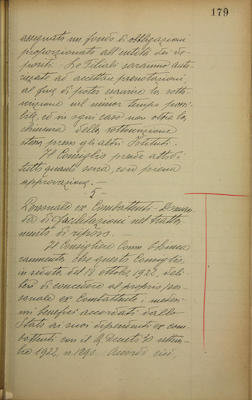 179
assegnato un fondo di obbligazioni
proporzionato all'entità dei de-
positi. Le Filiali saranno auto-
rizzate ad accettare prenotazioni,
al fine di poter esaurire la sotto-
scrizione nel minor tempo possi-
bile, ed in ogni caso non oltre la
chiusura della sottoscrizione
stessa presso gli altri Istituti.
Il Consiglio prende atto di
tutto quanto sopra, con piena
approvazione.
5
Personale ex Combattenti - Doman-
da di facilitazioni nel tratta-
mento di riposo.
Il Consigliere Comm.
rammenta che questo Consiglio,
in seduta del 18 ottobre 1923, deli-
berò di concedere al proprio per-
sonale ex Combattente, i mede-
simi benefici accordati dallo
Stato ai suoi dipendenti ex com-
battenti con il R. Decreto 30 settem-
bre 1922, n. 1290.